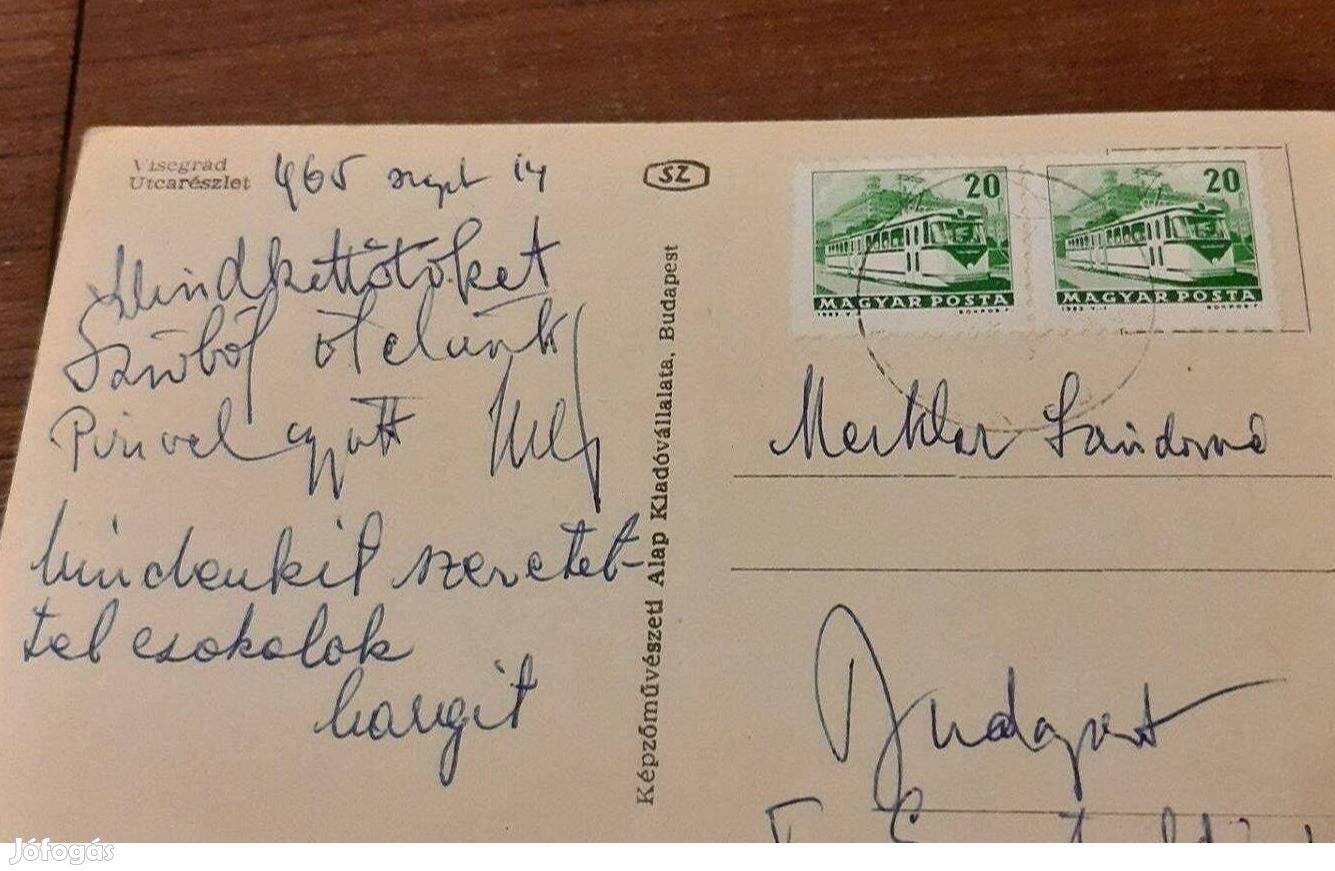 Visegrád
Utcarészlet
965 szept 14
Mindkettőtöket
Szívből ölelünk
Pirivel együtt
Mindenkit szeretet-
tel csokolok
Margit
SZ
Képzőművészeti Alap Kiadóvállalata, Budapest
20
MAGYAR POSTA
20
MAGYAR POSTA
Merkler Sándorné
Budapest
Jófogás